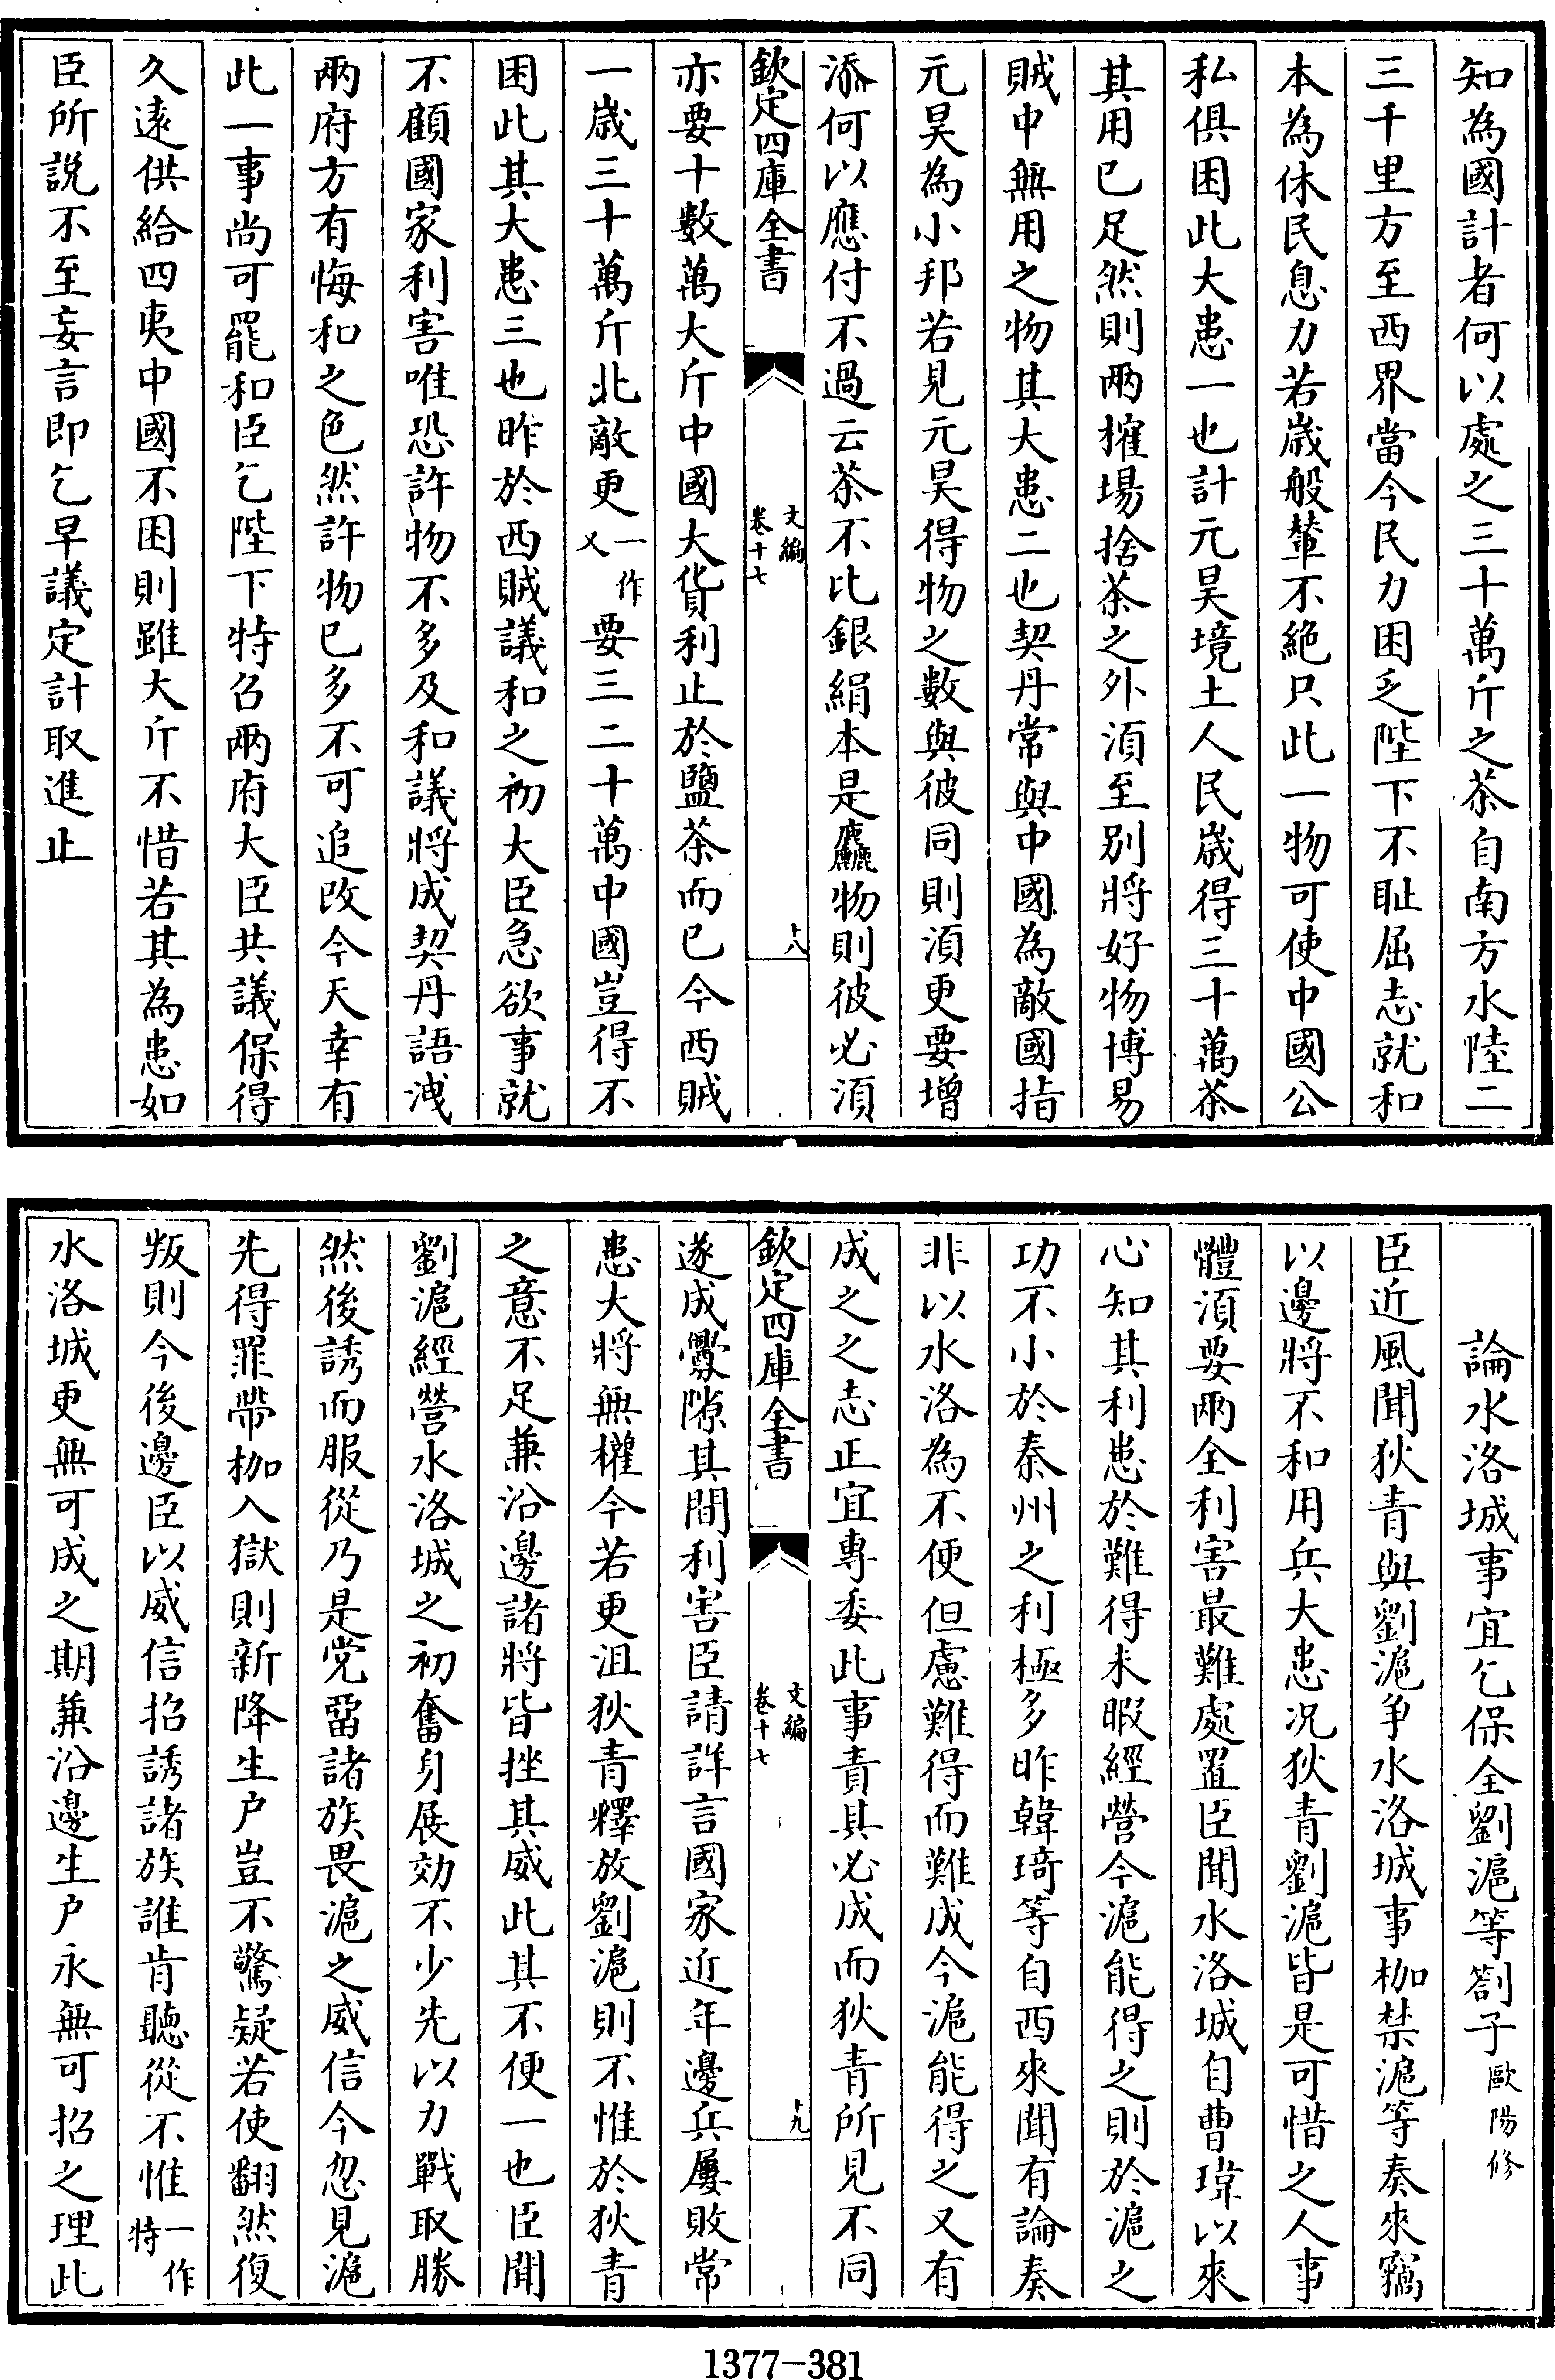 知為國計者何以處之三十萬斤之茶自南方水陸二
三千里方至西界當今民力困乏陛下不耻屈志就和
本為休民息力若歲般輦不絶只此一物可使中國公
私俱困此大患一也計元昊境土人民歲得三十萬茶
其用已足然則兩搉場捨茶之外須至别將好物博易
賊中無用之物其大患二也契丹常與中國為敵國指
元昊為小邦若見元昊得物之數與彼同則須更要增
添何以應付不過云茶不比銀絹本是麤物則彼必須
欽定四庫全書 文編 卷十七 十八
亦要十數萬大斤中國大貨利止於鹽茶而已今西賊
一歲三十萬斤北敵更一作又要三二十萬中國豈得不
困此其大患三也昨於西賊議和之初大臣急欲事就
不顧國家利害唯恐許物不多及和議將成契丹語洩
兩府方有悔和之色然許物已多不可追改今天幸有
此一事尚可罷和臣乞陛下特召兩府大臣共議保得
久遠供給四夷中國不困則雖大斤不惜若其為患如
臣所説不至妄言即乞早議定計取進止
論水洛城事宜乞保全劉滬等劄子歐陽修
臣近風聞狄青與劉滬爭水洛城事枷禁滬等奏來竊
以邊將不和用兵大患况狄青劉滬皆是可惜之人事
體須要兩全利害最難處置臣聞水洛城自曹瑋以來
心知其利患於難得未暇經營今滬能得之則於滬之
功不小於秦州之利極多昨韓琦等自西來聞有論奏
非以水洛為不便但慮難得而難成今滬能得之又有
成之之志正宜專委此事責其必成而狄青所見不同
欽定四庫全書 文編 卷十七 十九
遂成釁隙其間利害臣請詳言國家近年邊兵屢敗常
患大將無權今若更沮狄青釋放劉滬則不惟於狄青
之意不足兼沿邊諸將皆挫其威此其不便一也臣聞
劉滬經營水洛城之初奮身展効不少先以力戰取勝
然後誘而服從乃是党留諸族畏滬之威信今忽見滬
先得罪帶枷入獄則新降生户豈不驚疑若使翻然復
叛則今後邊臣以威信招誘諸族誰肯聽從不惟一作特
水洛城更無可成之期兼沿邊生户永無可招之理此
1377-381